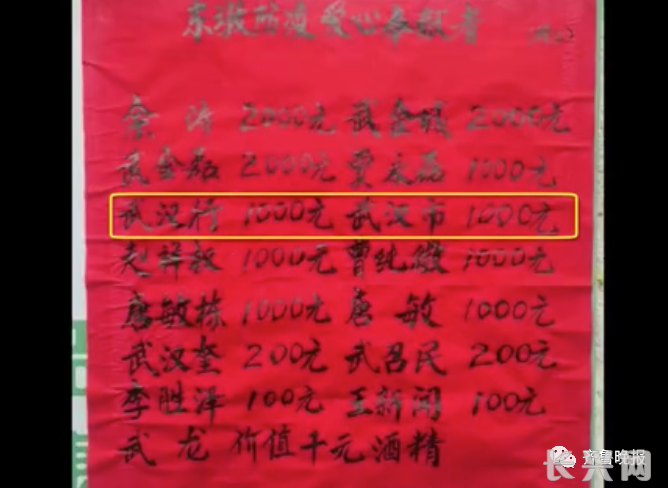 东墩防疫爱心奉献者
秦涛 2000元 武金城 2000元
武金磊 2000元 贾永磊 1000元
武汉行 1000元 武汉市 1000元
赵祥毅 1000元 曹纯徽 1000元
唐敏栋 1000元 唐敏 1000元
武汉奎 200元 武召民 200元
李胜泽 100元 王新闻 100元
武龙 价值千元酒精
齐鲁晚报
长久网